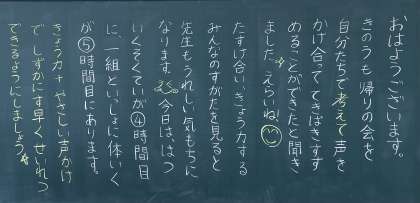 おはようございます。
きのうも帰りの会を
自分たちで考えて声を
かけ合っててきぱきすす
めることができたと聞き
ました。えらいね!
たすけ合い、きょう力する
みんなのすがたを見ると
先生もうれしい気もちに
なります。今日は、はつ
いくそくていが④時間目
に、一組といっしょに体いく
が⑤時間目にあります。
きょう力+やさしい声かけ
で、しずかにす早くせいれつ
できるようにしましょう。